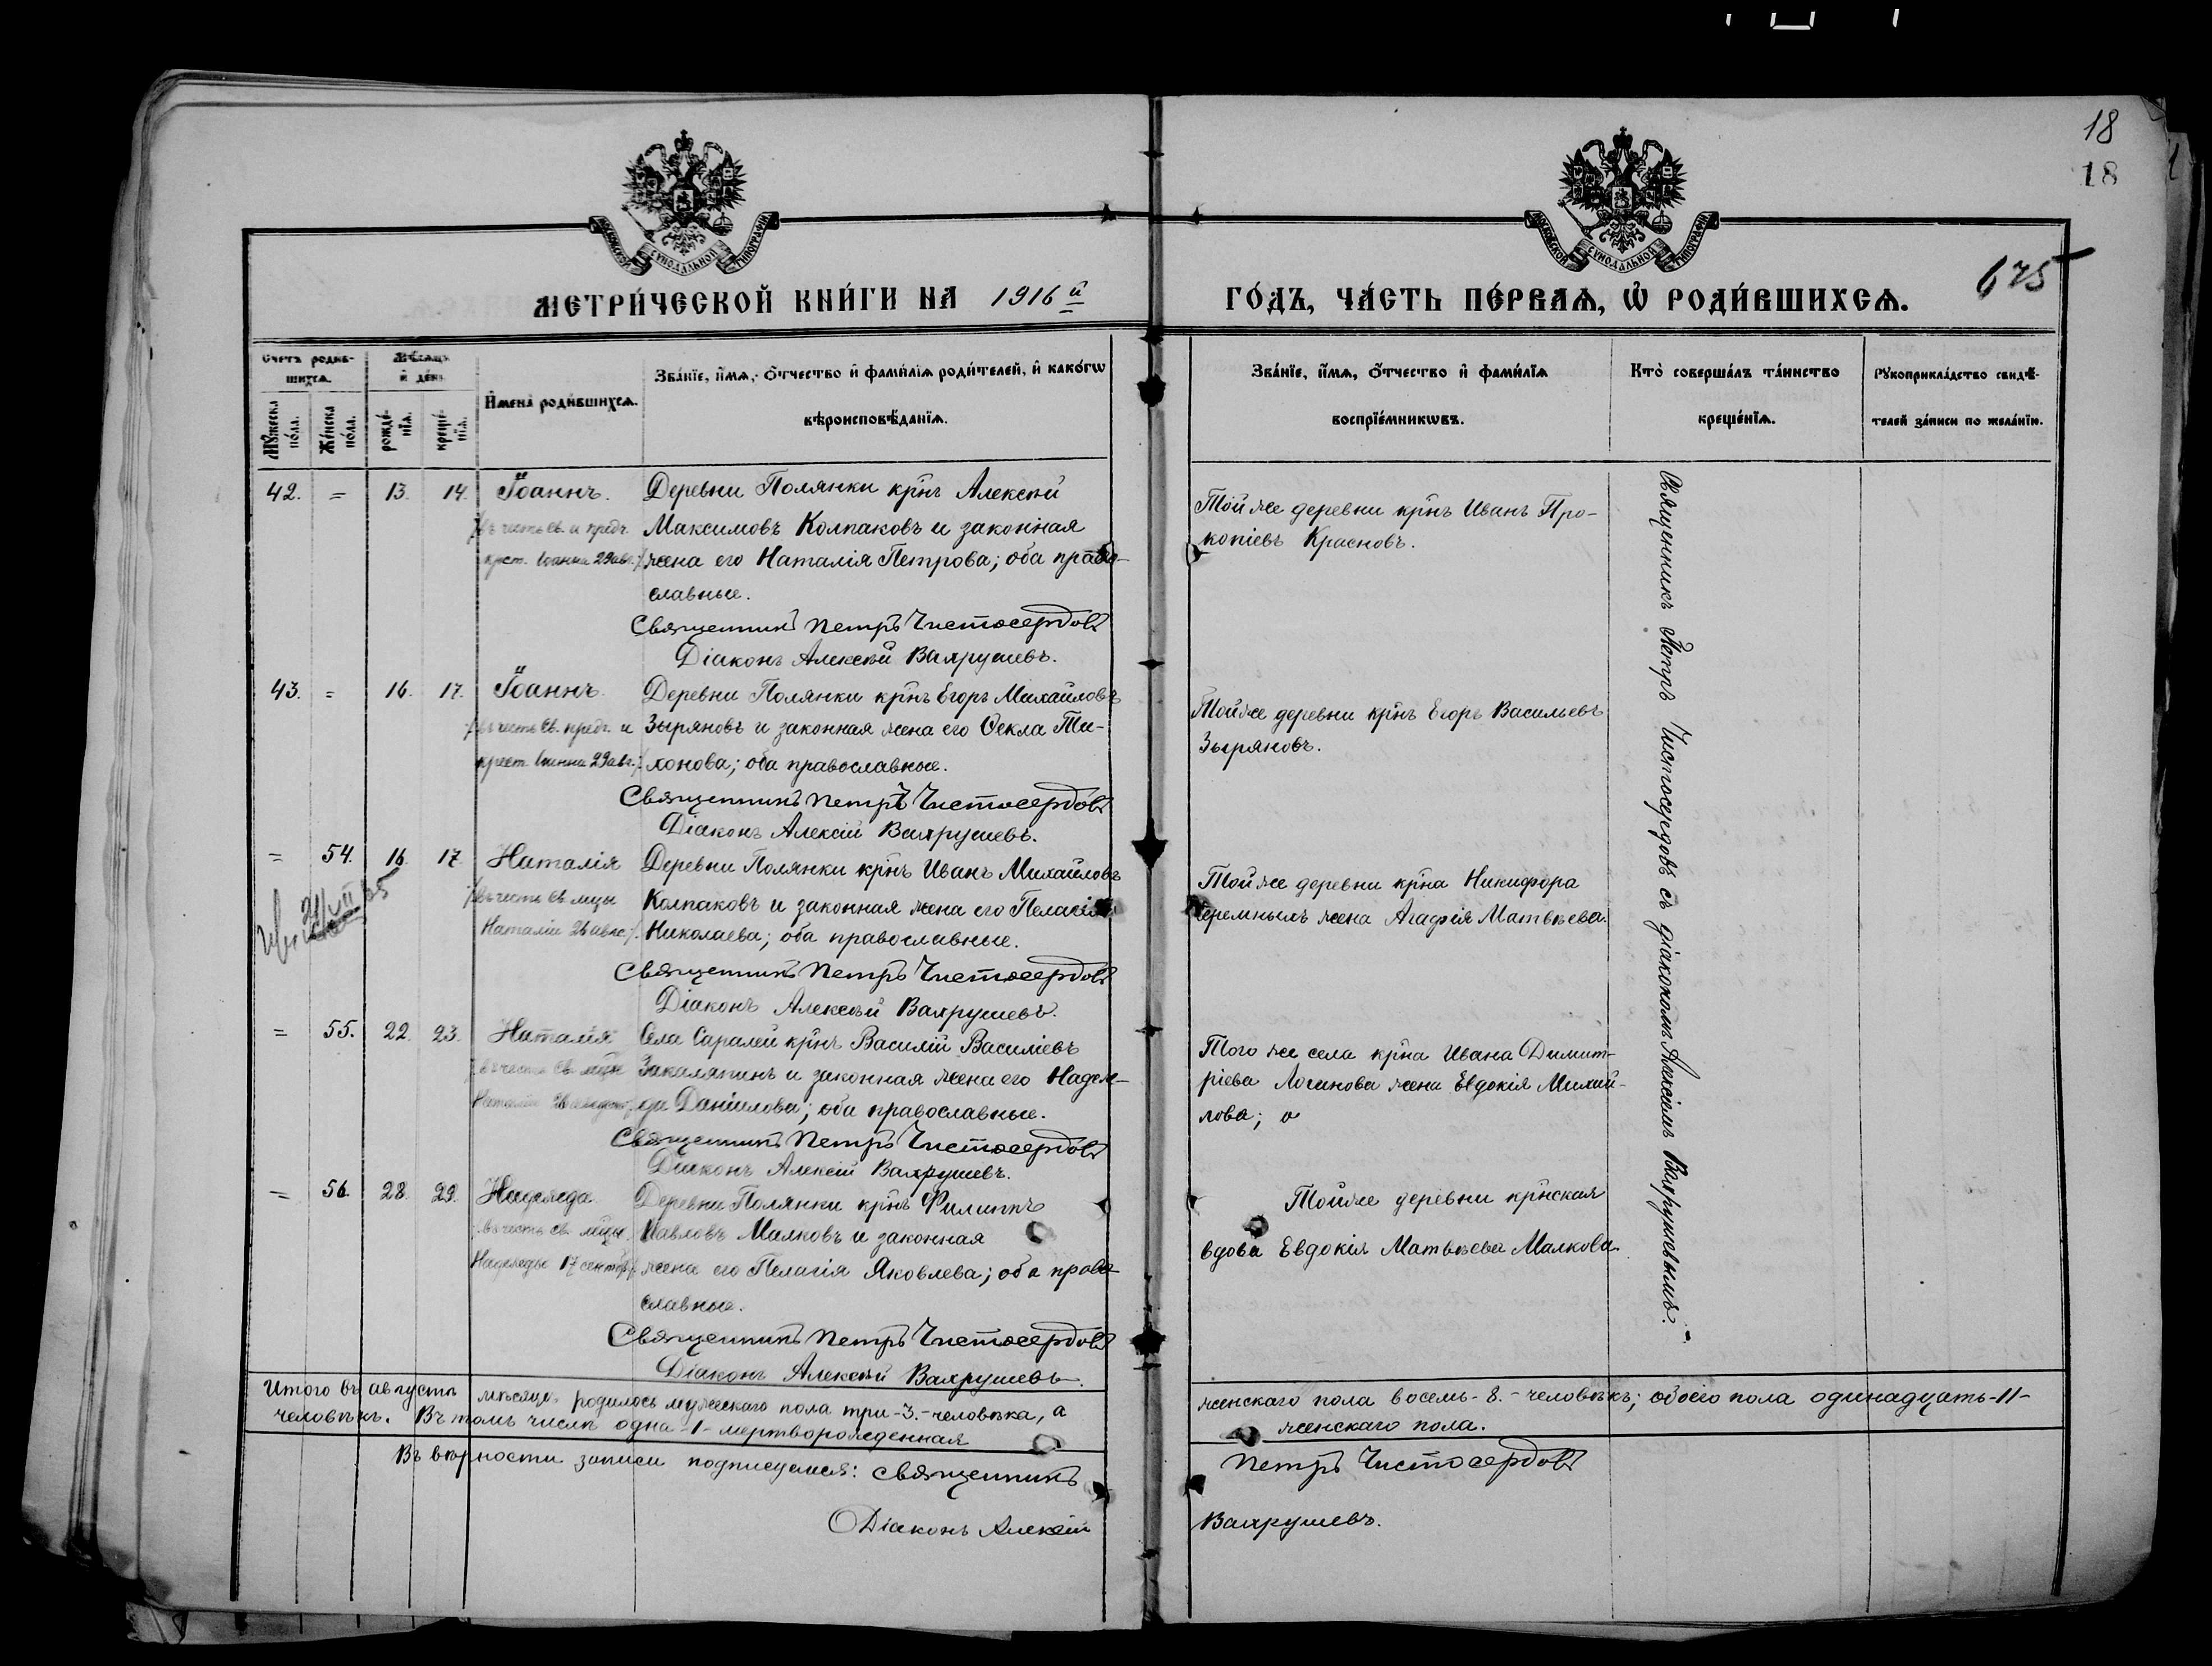 18
18
675
МЕТРИ́ЧЕСКОЙ КНИ́ГИ НА 1916 й
ГО́ДЪ, ЧА́СТЬ ПЕ́РВАѦ, Ѡ РОДИ́ВШИХСѦ.
Счетъ родив-
шихсѧ.
Мѣсѧцъ
и день
Мужеска
по́ла.
Же́нска
по́ла.
рожде́-
нїѧ.
креще́-
нїѧ.
Имена̀ роди́вшихсѧ.
Зва́нїе, и́мѧ, ѻ́тчество и фами́лїѧ роди́телей, и како́гѡ
вѣроисповѣ́данїѧ.
Зва́нїе, и́мѧ, ѻ́тчество и фами́лїѧ
воспрїе́мникѡвъ.
Кто̀ соверша́лъ та́инство
креще́нїѧ.
Рꙋкоприкла́дство свидѣ́-
телей за́писи по жела́нїю.
42. = 13. 14. Іоаннъ.
въ честь св. и предт.
крест. Іоанна 29 авг.
Деревни Полянки крнъ Алексѣй
Максимовъ Колпаковъ и законная
жена его Наталія Петрова; оба право-
славные.
Священникъ Петръ Чистосердовъ
Діаконъ Алексѣй Вахрушевъ.
Той же деревни крнъ Иванъ Про-
копіевъ Красновъ.
43. = 16. 17. Іоаннъ.
въ честь св. предт. и
крест. Іоанна 29 авг.
Деревни Полянки крнъ Егоръ Михайловъ
Зыряновъ и законная жена его Ѳекла Ти-
хонова; оба православные.
Священникъ Петръ Чистосердовъ
Діаконъ Алексій Вахрушевъ.
Той же деревни крнъ Егоръ Васильевъ
Зыряновъ.
= 54. 16. 17. Наталія
въ честь св. мцы
Наталіи 26 авгс.
Деревни Полянки крнъ Иванъ Михайловъ
Колпаковъ и законная жена его Пелагія
Николаева; оба православные.
Священникъ Петръ Чистосердовъ
Діаконъ Алексѣй Вахрушевъ.
Той же деревни крна Никифора
жена Агафія Матвѣева.
= 55. 22. 23. Наталія
въ честь св. мцы
Наталіи 26 августа
Села Саралей крнъ Василій Василіевъ
Закаляпинъ и законная жена его Надеж-
да Даніилова; оба православные.
Священникъ Петръ Чистосердовъ
Діаконъ Алексій Вахрушевъ.
Того же села крна Ивана Димит-
ріева Логинова жена Евдокія Михай-
лова;
= 56. 28. 29. Надежда
въ честь св. мцы
Надежды 17 сентяб.
Деревни Полянки крнъ Филиппъ
Павловъ Малковъ и законная
жена его Пелагія Яковлева; оба право-
славные.
Священникъ Петръ Чистосердовъ
Діаконъ Алексѣй Вахрушевъ.
Той же деревни крнская
вдова Евдокія Матвѣева Малкова.
Священникъ Петръ Чистосердовъ съ діакономъ Алексіемъ Вахрушевымъ.
Итого въ августѣ мѣсяцѣ родилось мужескаго пола три -3.- человѣка, а
женскаго пола восемь - 8. - человѣкъ; обоего пола одинадцать -11-
человѣкъ. Въ томъ числѣ одна -1- мертворожденная
женскаго пола.
Въ вѣрности записи подписуемся: Священникъ
Петръ Чистосердовъ
Діаконъ Алексій
Вахрушевъ.